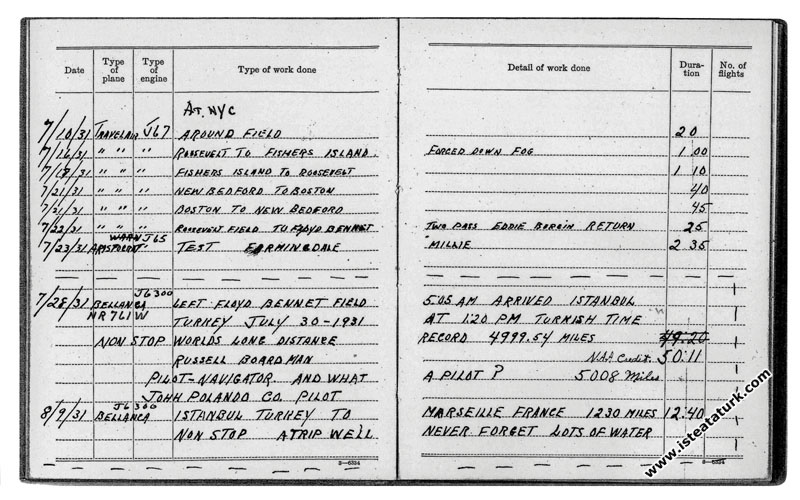 Date Type of plane Type of engine Type of work done Detail of work done Dura-tion No. of flights
AT. NYC
7/10/31 TRAVELAIR J67 AROUND FIELD 20
7/16/31 " " " ROOSEVELT TO FISHERS ISLAND. FORCED DOWN FOG 1 00
7/18/31 " " " FISHERS ISLAND TO ROOSEVELT 1 10
7/21/31 " " " NEW BEDFORD TO BOSTON 40
7/21/31 " " " BOSTON TO NEW BEDFORD 45
7/22/31 " " " ROOSEVELT FIELD TO FLOYD BENNET TWO PASS EDDIE RETURN 25
7/23/31 ARISTOCRAT WARN J65 TEST FARMINGDALE MILLIE 2 35
7/28/31 BELLANCA J6 300 LEFT FLOYD BENNET FIELD 5:05 AM ARRIVED ISTANBUL
NR 761 W TURKEY JULY 30-1931 AT 1:20 PM TURKISH TIME
NON STOP WORLDS LONG DISTANCE RECORD 4999.54 MILES 49:20
RUSSELL BOARDMAN NAA Credit. 50:11
PILOT-NAVIGATOR. AND WHAT A PILOT? 5008 Miles
JOHN POLANDO CO. PILOT
8/9/31 BELLANCA J6 300 ISTANBUL TURKEY TO MARSEILLE FRANCE 1230 MILES 12:40
NON STOP A TRIP WE'LL NEVER FORGET LOTS OF WATER
3—6334 3—6334
www.isteataturk.com